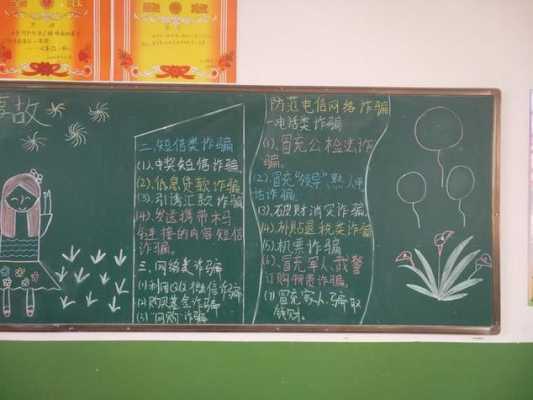 防范电信网络诈骗
一电话类诈骗
(1).冒充公检法诈
骗.
(2).冒充"领导"熟人电
话诈骗.
(3).破财消灾诈骗.
(4).补贴退税类诈骗
(5).机票诈骗
(6).冒充军人.武警
订购物资诈骗.
(7)冒充家人骗取
钱财.
二.短信类诈骗
(1).中奖短信诈骗.
(2).低息贷款诈骗
(3).引诱汇款诈骗
(4).发送携带木马
链接的内容短信
诈骗.
三.网络类诈骗
(1)利用QQ微信诈骗
(2)购买基金诈骗
(3)"网购"诈骗
故